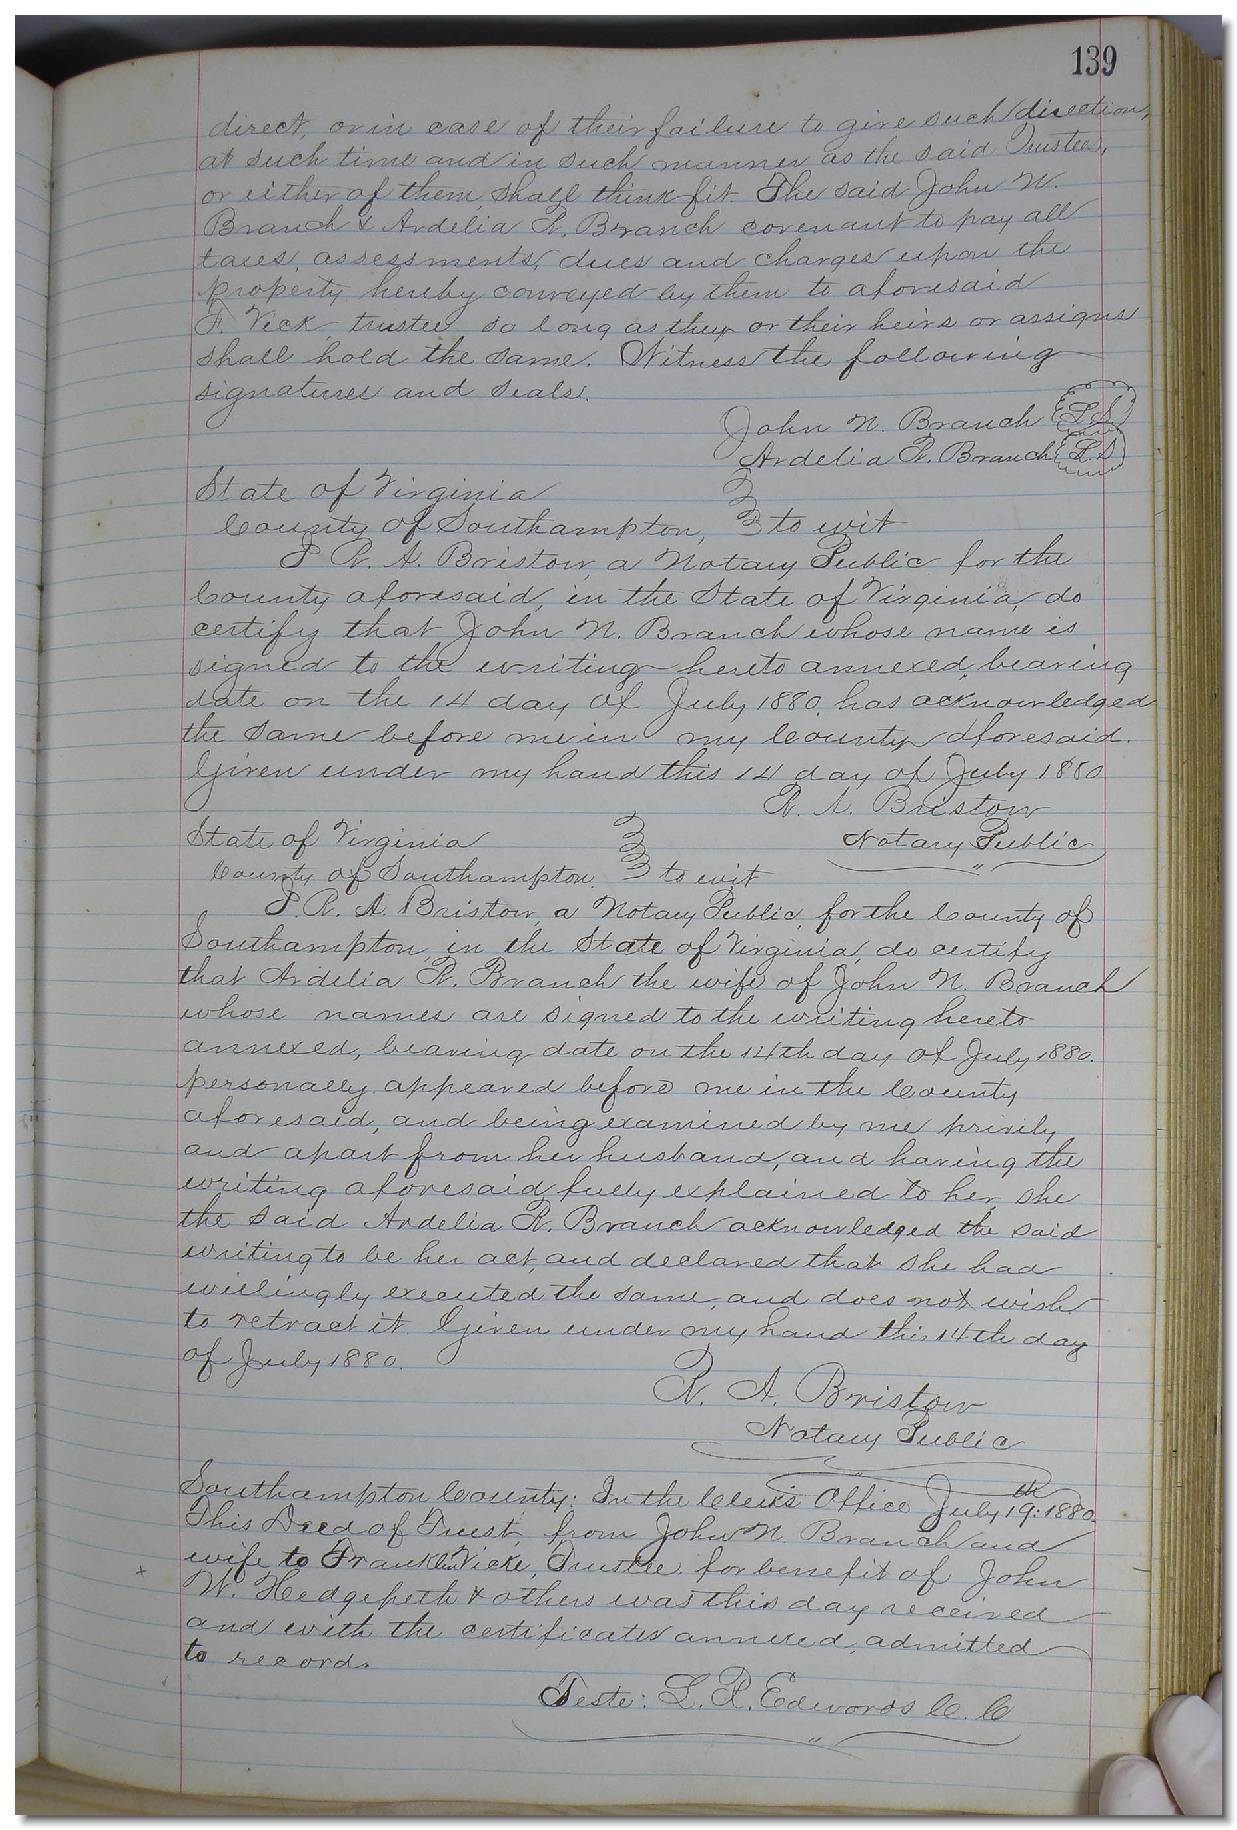 139
direct, or in case of their failure to give such direction,
at such time and in such manner as the said Trustee,
or either of them, shall think fit. The said John N.
Branch & Ardelia R. Branch covenant to pay all
taxes, assessments, dues and charges upon the
property hereby conveyed by them to aforesaid
F. Vick trustee so long as they or their heirs or assigns
shall hold the same. Witness the following
signatures and seals.
John N. Branch L.S
Ardelia R. Branch L.S
State of Virginia
County of Southampton, to wit
I R. A. Bristow, a Notary Public for the
County aforesaid, in the State of Virginia, do
certify that John N. Branch whose name is
signed to the writing hereto annexed, bearing
date on the 14 day of July 1880, has acknowledged
the same before me in my County aforesaid.
Given under my hand this 14 day of July 1880
R. A. Bristow
Notary Public
State of Virginia
County of Southampton, to wit
I. R. A. Bristow, a Notary Public, for the County of
Southampton, in the State of Virginia, do certify
that Ardelia R. Branch the wife of John N. Branch
whose names are signed to the writing hereto
annexed, bearing date on the 14th day of July 1880.
personally appeared before me in the County
aforesaid, and being examined by me privily
and apart from her husband, and having the
writing aforesaid fully explained to her, she
the said Ardelia R. Branch acknowledged the said
writing to be her act, and declared that she had
willingly executed the same, and does not wish
to retract it Given under my hand this 14th day
of July 1880.
R. A. Bristow
Notary Public
Southampton County: In the Clerk's Office July 19th: 1880.
This Deed of Trust, from John N. Branch and
wife to Franklin Vick, Trustee, for benefit of John
W. Hedgepeth & others was this day received
and with the certificates annexed, admitted
to record.
Teste: L. R. Edwards C. C